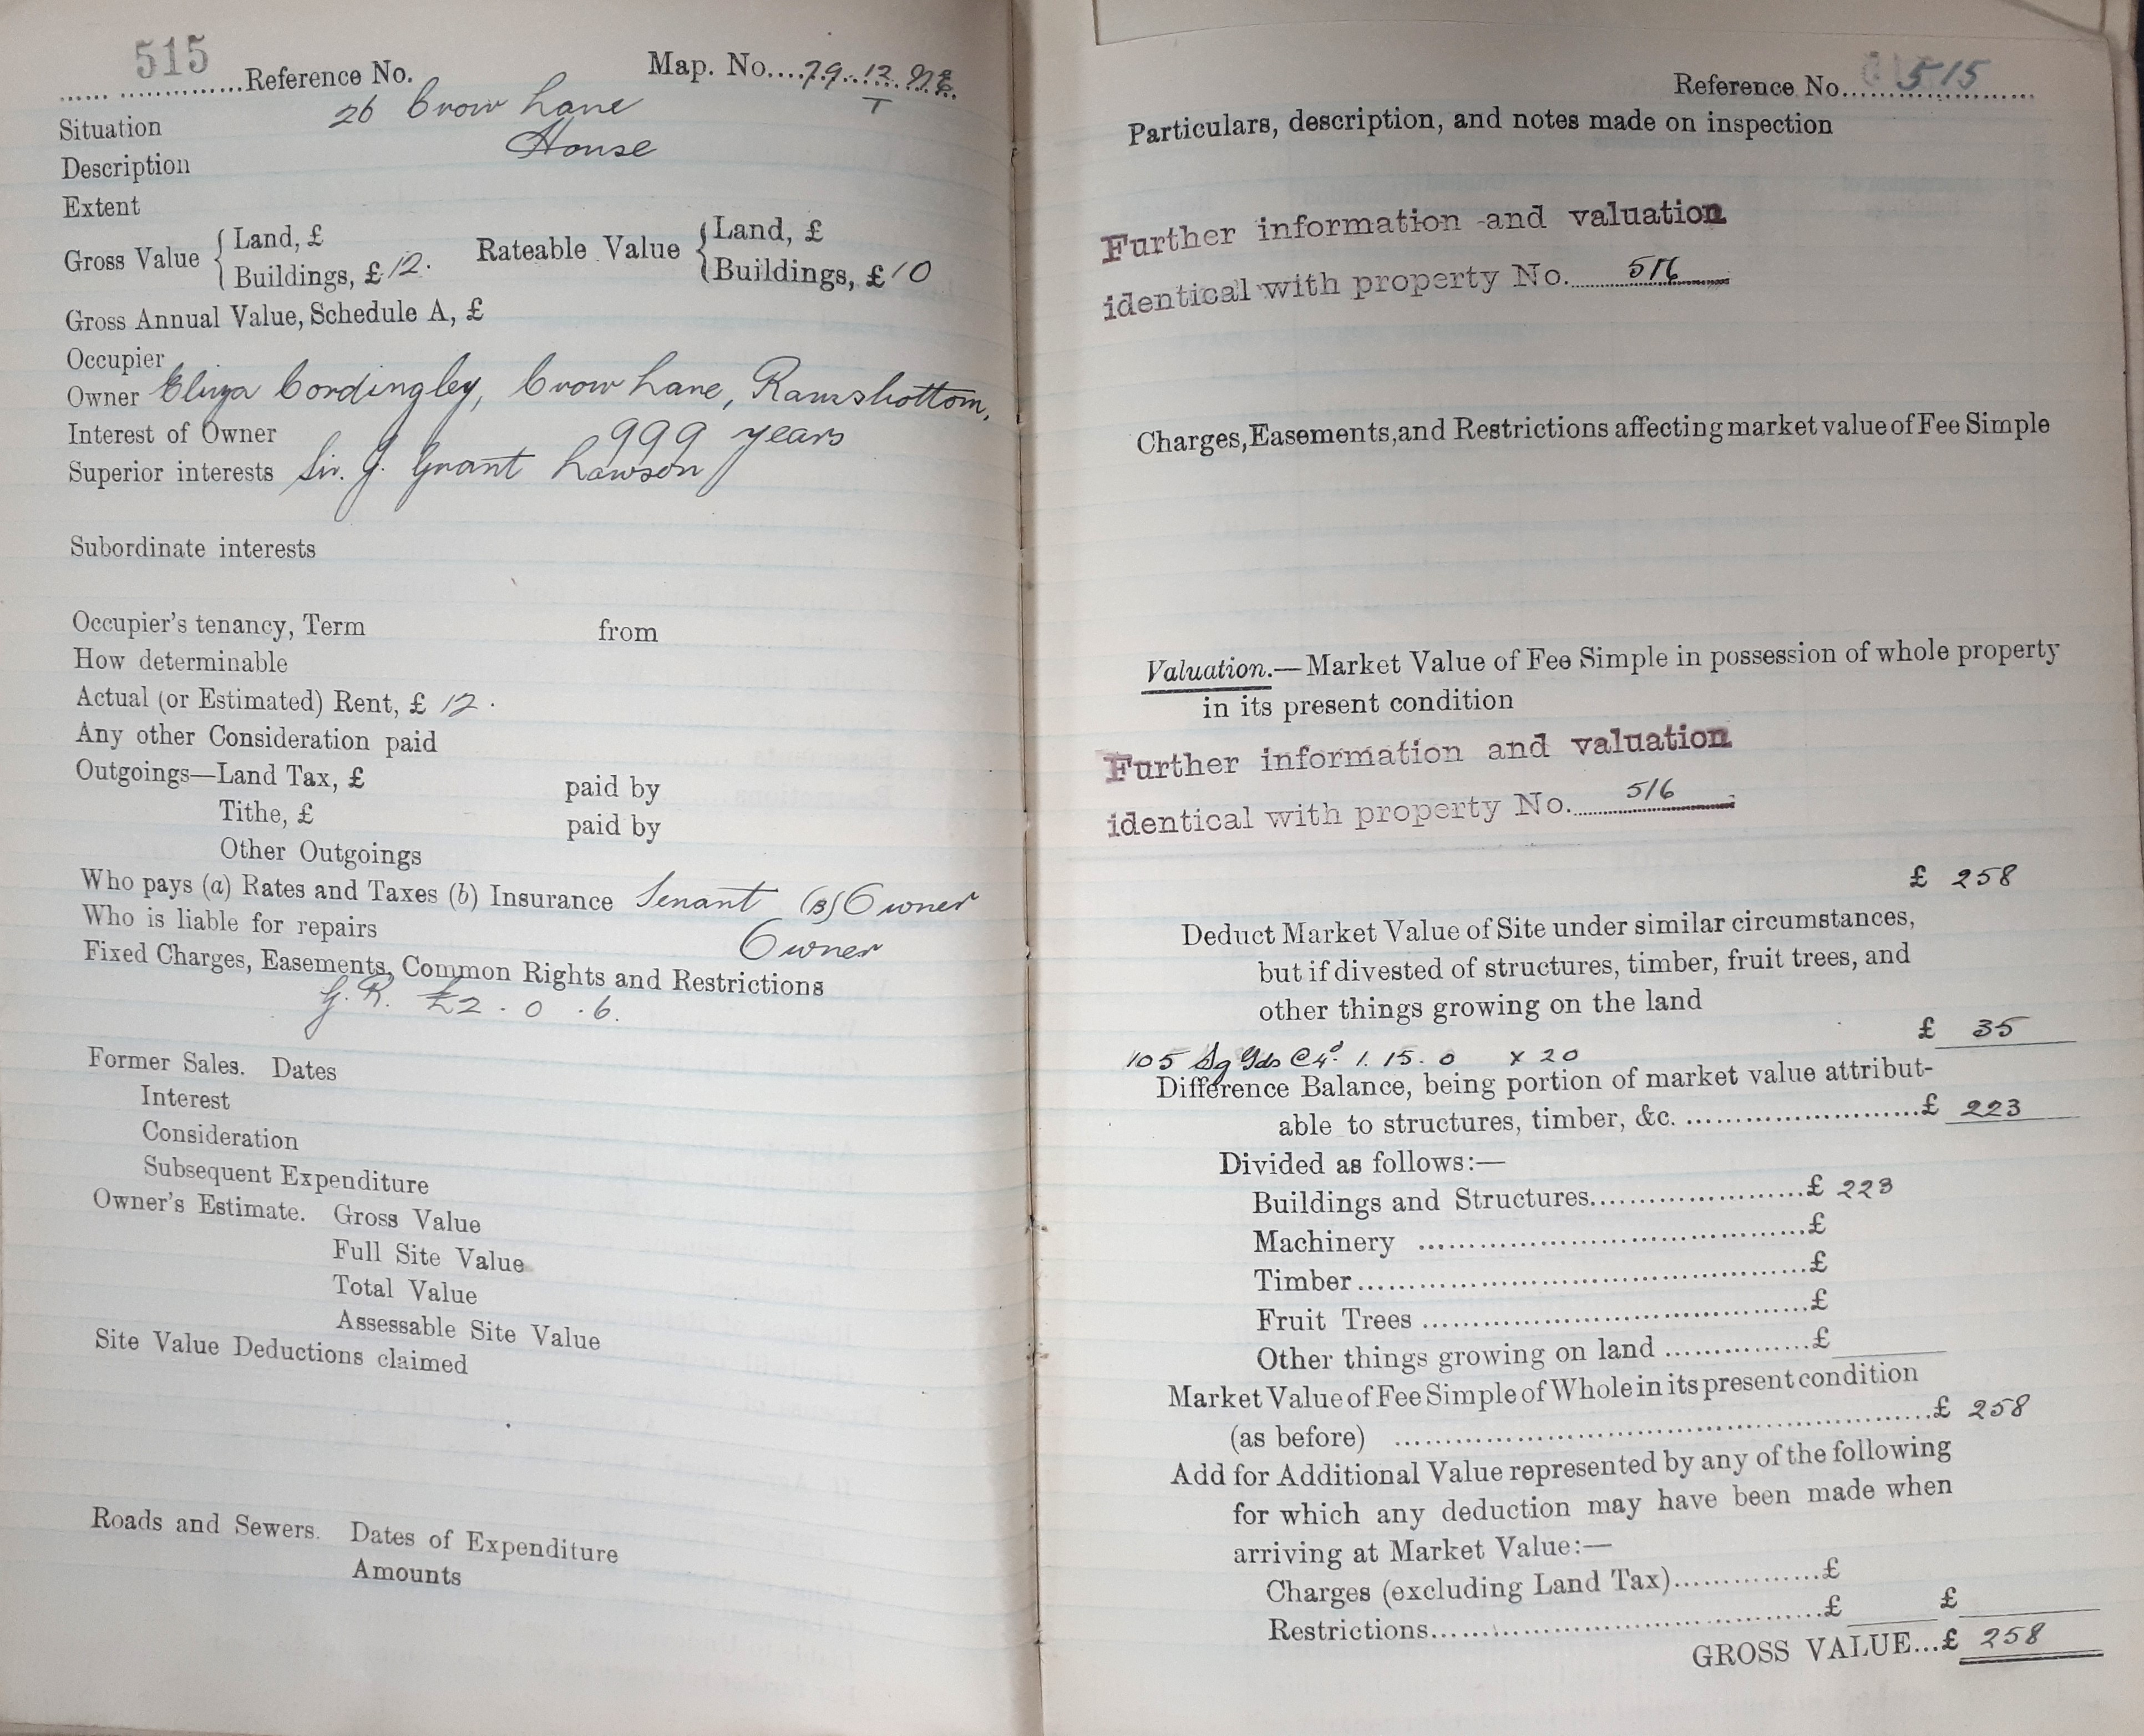 515
Reference No.
Map. No.... 79. 13. N.E.
T
Situation 26 Crow Lane
Description House
Extent
Gross Value { Land, £
Buildings, £ 12.
Rateable Value { Land, £
Buildings, £ 10
Gross Annual Value, Schedule A, £
Occupier
Owner Eliza Cordingley, Crow Lane, Ramsbottom,
Interest of Owner 999 years
Superior interests Sir. J. Grant Lawson
Subordinate interests
Occupier's tenancy, Term from
How determinable
Actual (or Estimated) Rent, £ 12.
Any other Consideration paid
Outgoings—Land Tax, £ paid by
Tithe, £ paid by
Other Outgoings
Who pays (a) Rates and Taxes (b) Insurance Tenant (B) Owner
Who is liable for repairs Owner
Fixed Charges, Easements, Common Rights and Restrictions
G.R. £2 . 0 . 6.
Former Sales. Dates
Interest
Consideration
Subsequent Expenditure
Owner's Estimate. Gross Value
Full Site Value
Total Value
Assessable Site Value
Site Value Deductions claimed
Roads and Sewers. Dates of Expenditure
Amounts
Reference No. 515
Particulars, description, and notes made on inspection
Further information and valuation
identical with property No. 516
Charges, Easements, and Restrictions affecting market value of Fee Simple
Valuation.—Market Value of Fee Simple in possession of whole property
in its present condition
Further information and valuation
identical with property No. 516
£ 258
Deduct Market Value of Site under similar circumstances,
but if divested of structures, timber, fruit trees, and
other things growing on the land
£ 35
105 Sq Yds @ 4d. 1. 15. 0 x 20
Difference Balance, being portion of market value attribut-
able to structures, timber, &c. ........................£ 223
Divided as follows:—
Buildings and Structures........................£ 223
Machinery ........................£
Timber........................£
Fruit Trees ........................£
Other things growing on land ................£
Market Value of Fee Simple of Whole in its present condition
(as before) ........................£ 258
Add for Additional Value represented by any of the following
for which any deduction may have been made when
arriving at Market Value:—
Charges (excluding Land Tax)...............£
Restrictions........................£ £
GROSS VALUE...£ 258